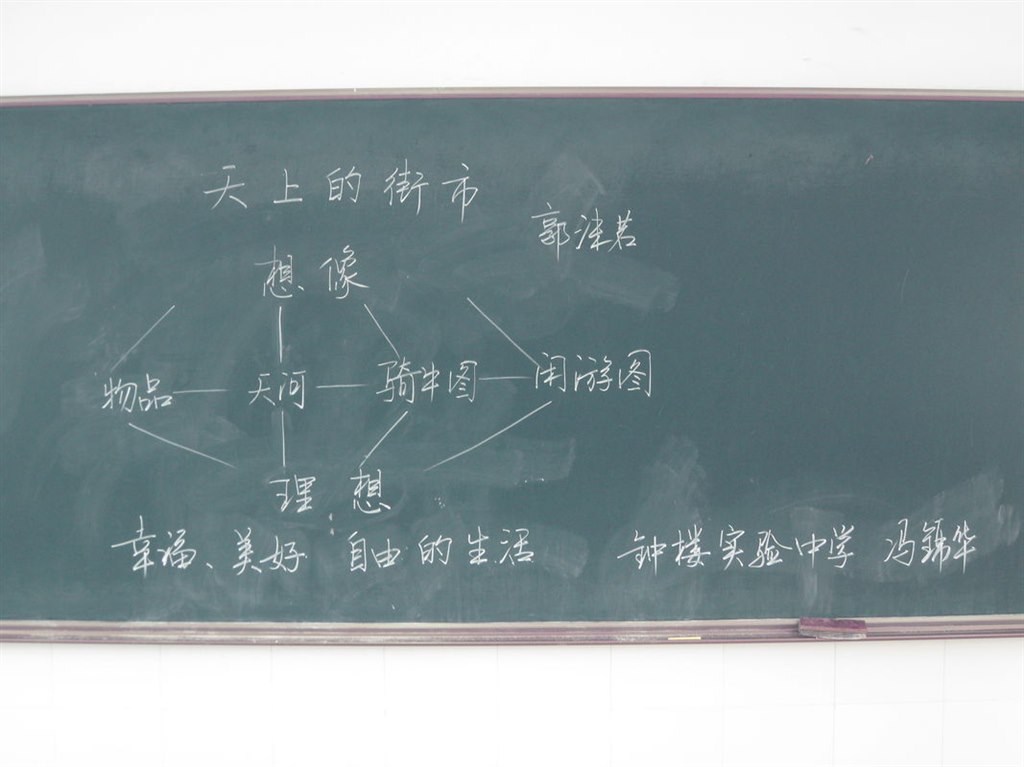 天上的街市
郭沫若
想像
物品 天河 骑牛图 闲游图
理想
幸福、美好 自由的生活 钟楼实验中学 冯锦华